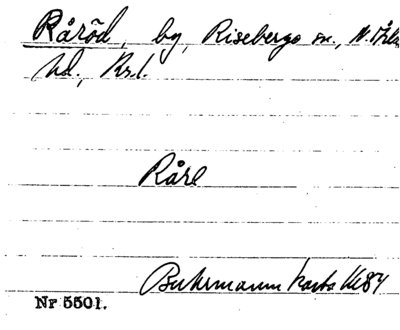 Råröd, by, Risebergs sn., N. Åsbo
hd., Kr.l.
Råre
Buhrmanns karta 1684
Nr 5501.